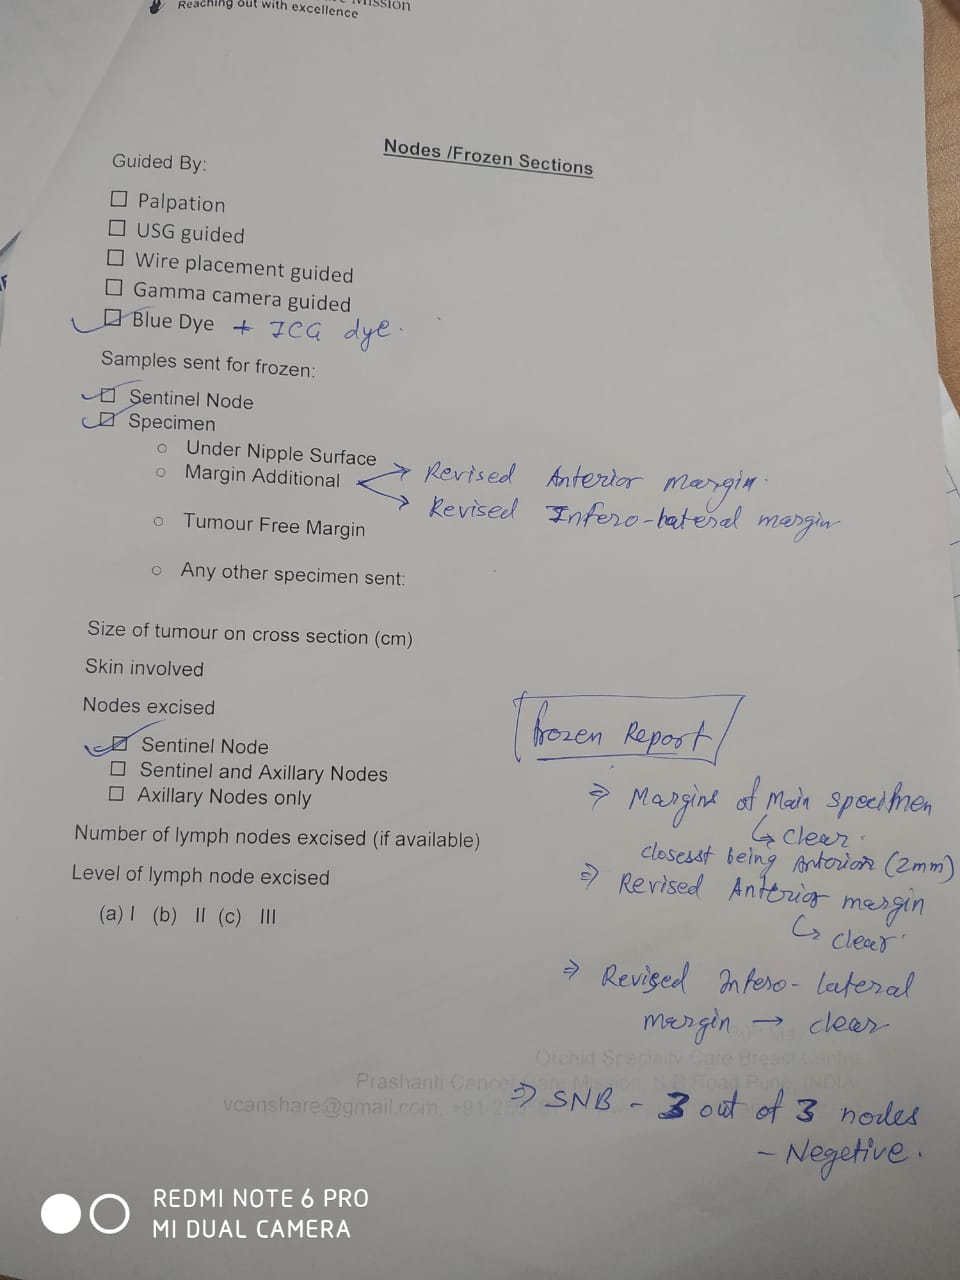 Mission
Reaching out with excellence
Nodes /Frozen Sections
Guided By:
☐ Palpation
☐ USG guided
☐ Wire placement guided
☐ Gamma camera guided
☑ Blue Dye + ICG dye.
Samples sent for frozen:
☑ Sentinel Node
☑ Specimen
○ Under Nipple Surface
○ Margin Additional → Revised Anterior margin.
→ Revised Infero-lateral margin
○ Tumour Free Margin
○ Any other specimen sent:
Size of tumour on cross section (cm)
Skin involved
Nodes excised
☑ Sentinel Node
☐ Sentinel and Axillary Nodes
☐ Axillary Nodes only
Number of lymph nodes excised (if available)
Level of lymph node excised
(a) I (b) II (c) III
Frozen Report
⇒ Margins of Main specimen
↳ clear.
closesst being Anterior (2mm)
⇒ Revised Anterior margin
↳ clear
⇒ Revised Infero-lateral
margin → clear
Orchid Specialty Care Breast Centre
Prashanti Cancer Care Mission, S B Road Pune, INDIA
vcanshare@gmail.com, +91
⇒ SNB - 3 out of 3 nodes
- Negetive.
REDMI NOTE 6 PRO
MI DUAL CAMERA